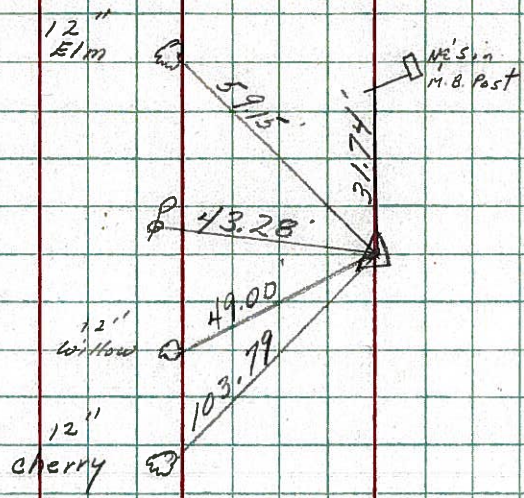 12"
Elm
N&'s in
M.B. Post
59.15'
31.74'
43.28'
49.00'
12"
Willow
103.79
12"
cherry